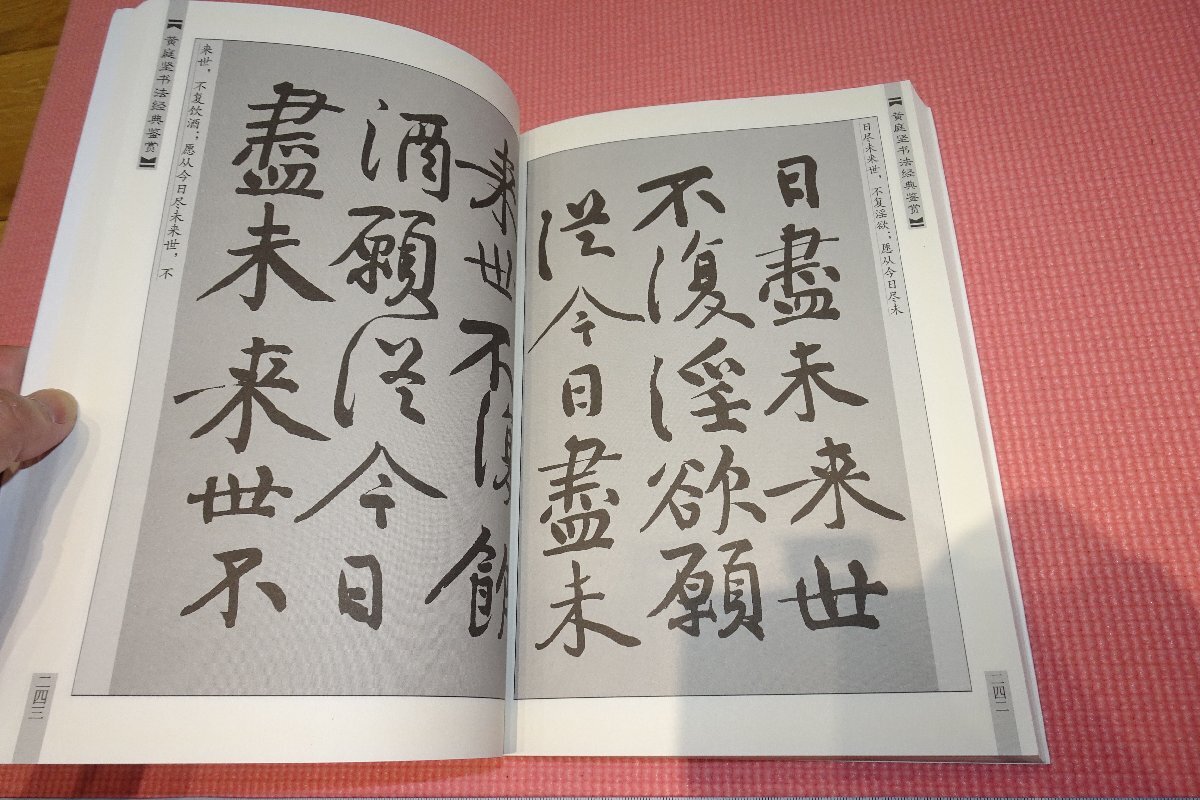 【黄庭坚书法经典鉴赏】
日尽未来世，不复淫欲；愿从今日尽未
日盡未来世
不復淫欲願
從今日盡未
二四二
来世不復飲
酒願從今日
盡未来世不
来世，不复饮酒；愿从今日尽未来世，不
【黄庭坚书法经典鉴赏】
二四三